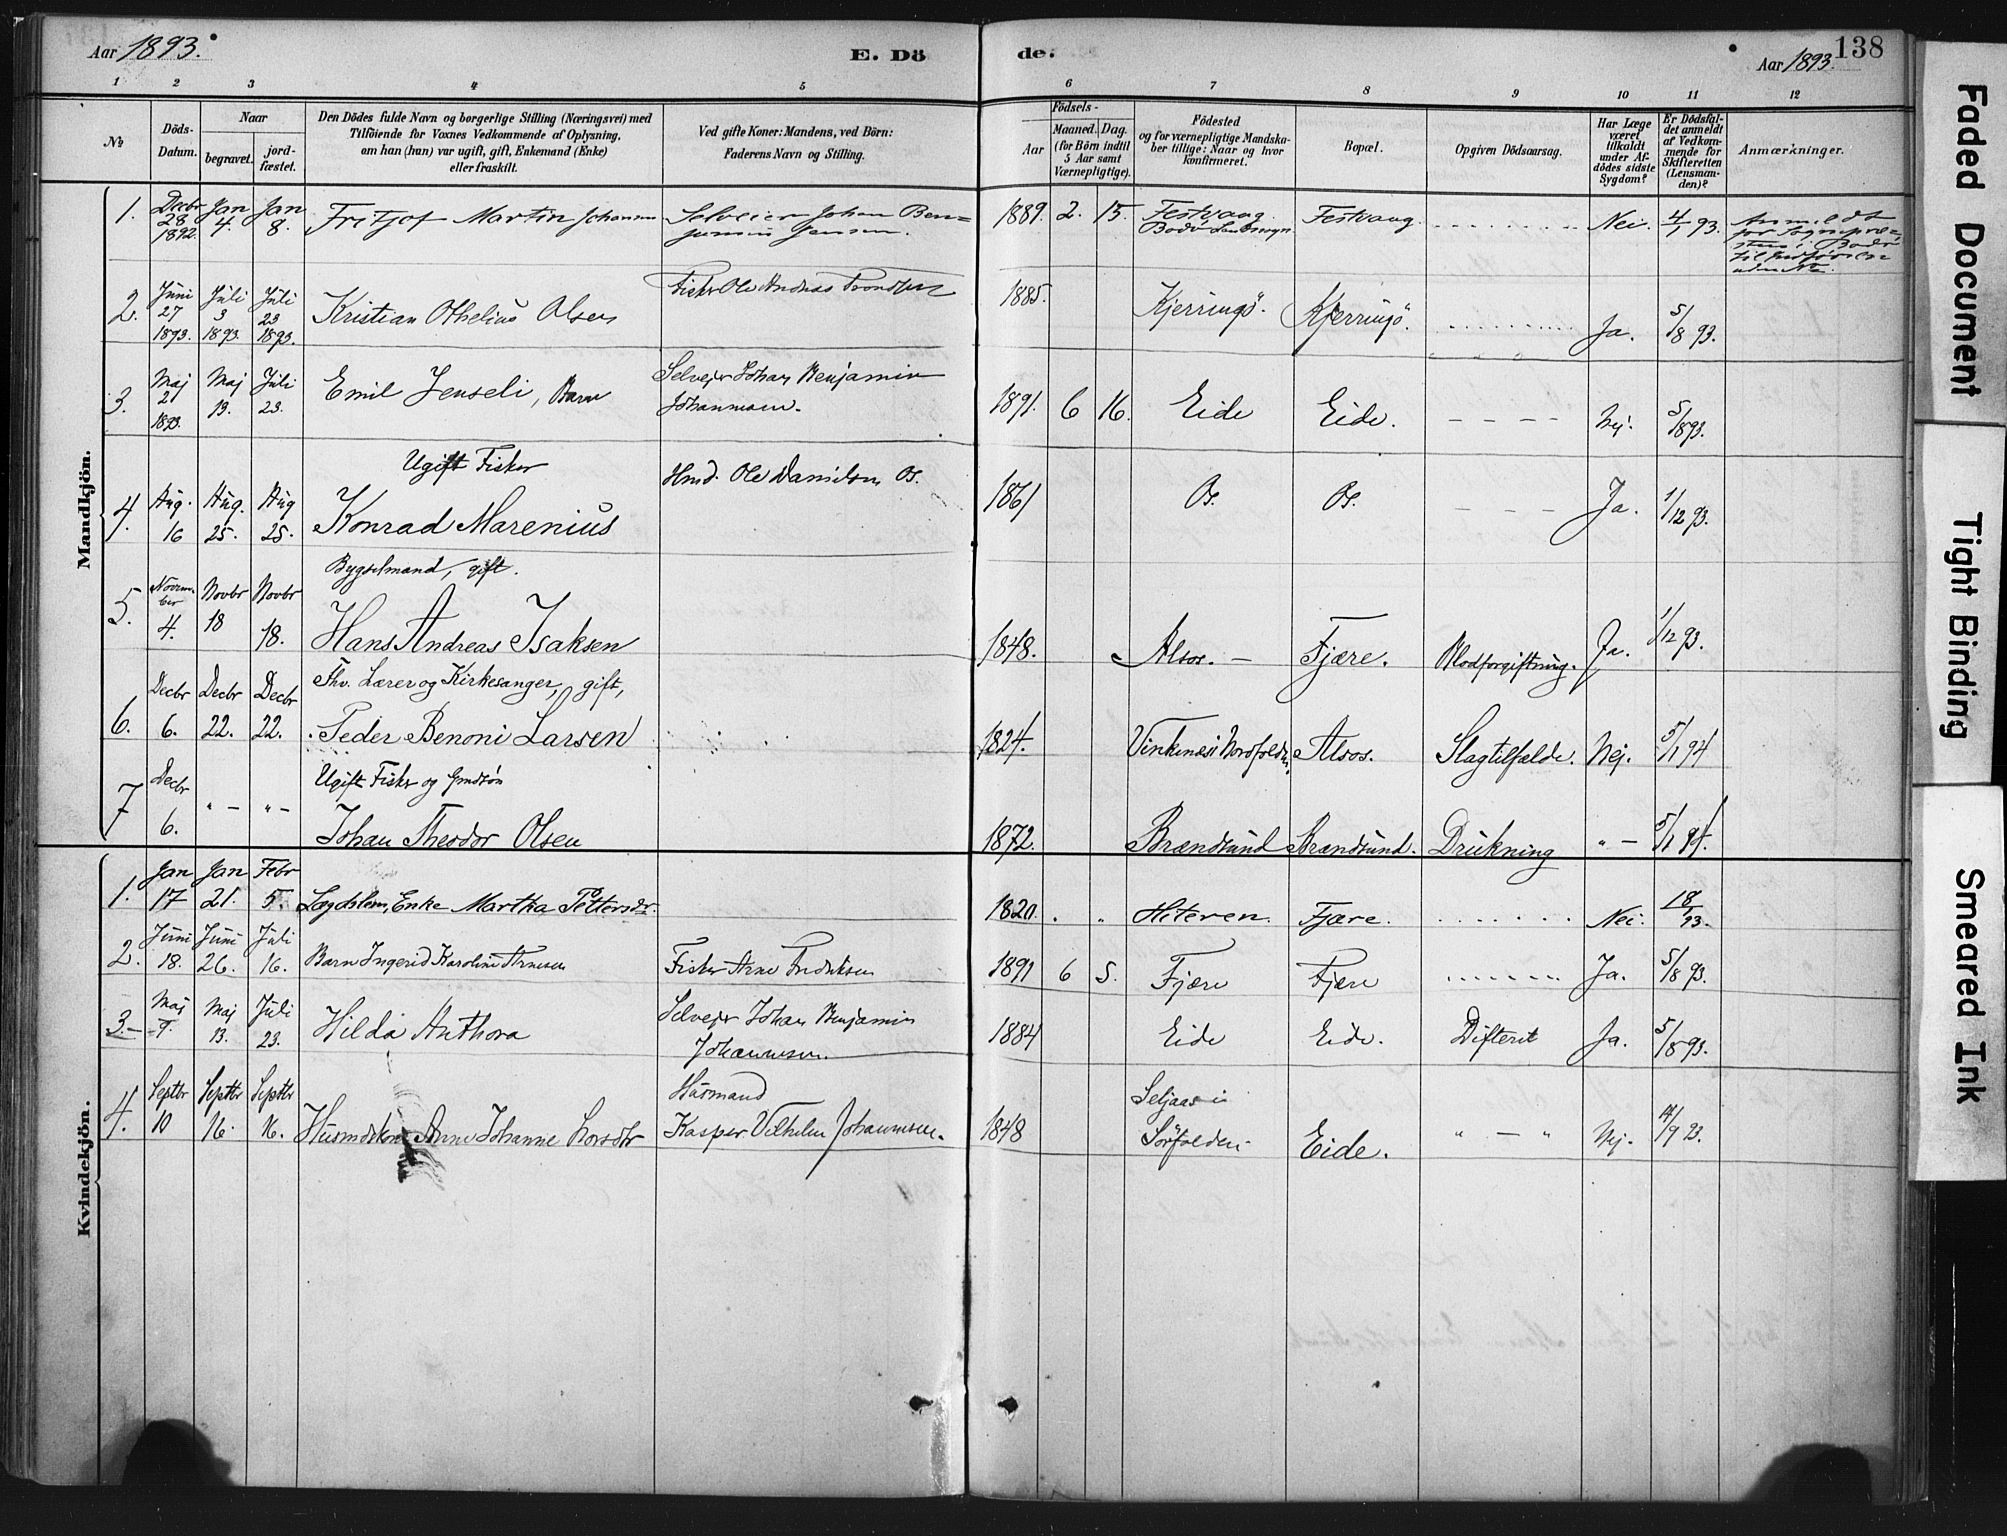 Aar 1893.
E. Dö
de.
Aar 1893.
138
1 2 3 4 5 6 7 8 9 10 11 12
No
Döds-
Datum.
Naar
begravet.
jord-
fæstet.
Den Dödes fulde Navn og borgerlige Stilling (Næringsvei) med
Tilföiende for Voxnes Vedkommende af Oplysning,
om han (hun) var ugift, gift, Enkemand (Enke)
eller fraskilt.
Ved gifte Koner: Mandens, ved Börn:
Faderens Navn og Stilling.
Födsels-
Aar
Maaned. Dag.
(for Börn indtil
5 Aar samt
Værnepligtige).
Födested
og for værnepligtige Mandska-
ber tillige: Naar og hvor
konfirmeret.
Bopæl.
Opgiven Dödsaarsag.
Har Læge
været
tilkaldt
under Af-
dødes sidste
Sygdom?
Er Dödsfal-
det anmeldt
af Vedkom-
mende for
Skifteretten
(Lensman-
den)?
Anmærkninger.
Mandkjön.
1. Decbr 28 1892. Jan 4. Jan 8. Fritjof Martin Johansen Selveier Johan Ben=
jamin Jensen. 1889. 2. 15. Festvaag. Bodø Landsogn Festvaag. Nei. 4/1 93. Anmeldt
for Sognepræ=
sten i Bodø
2. Juni 27 1893. Juli 3 1893. Juli 23 1893. Kristian Othelius Olsen Fisker Ole Andreas Trondsen 1885. Kjerringö. Kjerringö. Ja. 5/8 93.
3. Maj 21 1893. Maj 13. Juli 23. Emil Jenseli, Barn Selvejer Johan Benjamin
Johannesen. 1891. 6 16. Eide Eide. Nej. 5/8 93.
4. Aug. 16 Aug. 25. Aug 25. Ugift Fisker
Konrad Marenius Hmd. Ole Danielsen Os. 1861 Os. Os. Ja. 1/12 93.
5. November 4. Novbr 18 Novbr 18. Bygselmand, gift.
Hans Andreas Isaksen 1848. Alsos. Fjære. Blodforgiftning. Ja. 1/12 93.
6. Decbr 6. Decbr 22. Decbr 22. Fhv. Lærer og Kirkesanger, gift,
Peder Benoni Larsen 1824. Vinkenes i Nordfolden. Alsos. Slagtilfælde. Nej. 5/1 94
7 Decbr 6. " — " — Ugift Fisker og
Johan Theodor Olsen 1872. Brændsund Brændsund. Drukning " — 5/1 94.
Kvindekjön.
1. Jan 17 Jan 21. Febr 5. Lægdslem, Enke Martha Pettersdr. 1820. Hiteren. Fjære. Nei. 18/1 93.
2. Juni 18. Juni 26. Juli 16. Barn Ingerid Karoline Arnesen Fisker Arne Fredriksen 1891 6 5. Fjære Fjære Ja. 5/8 93.
3. Maj 9. Maj 13. Juli 23. Hilda Anthora Selvejer Johan Benjamin
Johannesen. 1884 Eide Eide. Difterit Ja. 5/8 93.
4. Septbr 10 Septbr 16. Septbr 16. Husmdskone Anne Johanne Larsdtr Husmand
Kasper Vilhelm Johannesen. 1848 Seljaas i
Sörfolden Eide. " — " Nej. 14/9 93.
Faded Document
Tight Binding
Smeared Ink